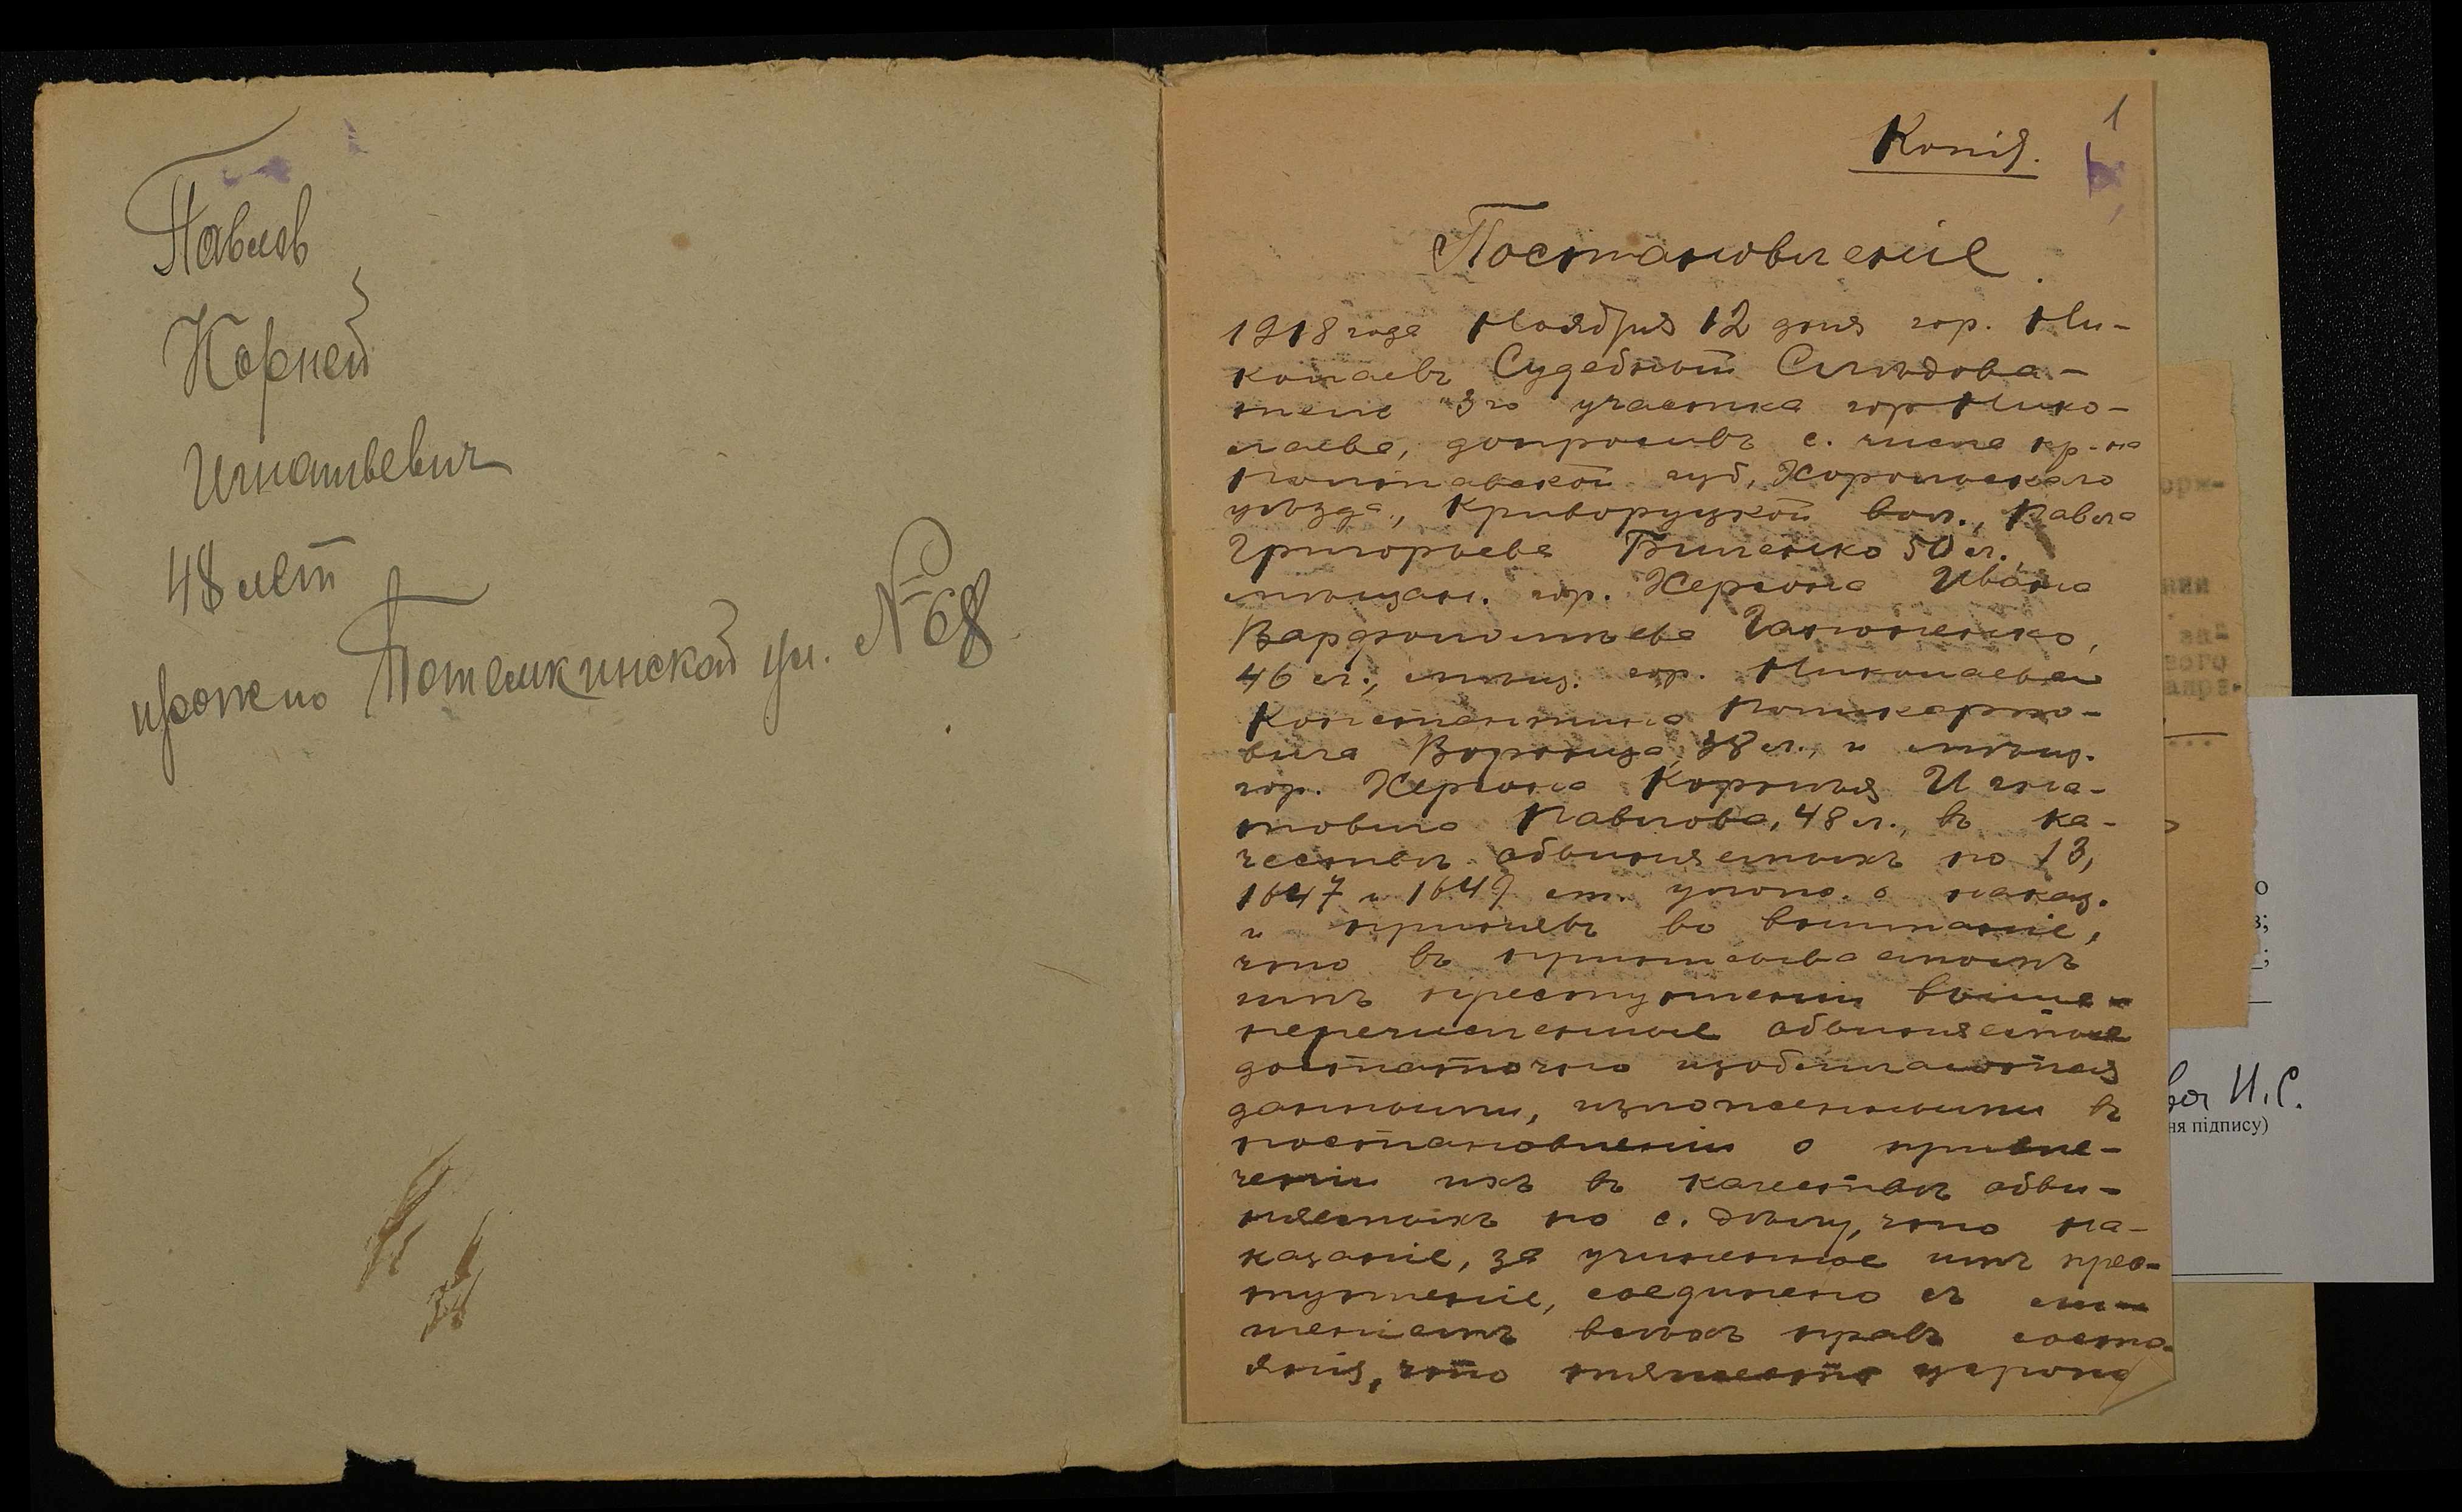 Павлов
Корней
Игнатьевич
48 лет
Потемкинской ул. № 68.
1
Копія.
Постановленіе.
1918 года Ноября 12 дня гор. Ни-
колаевъ Судебный Слѣдова-
тель 3го участка гор Нико-
лаева, допросивъ с. числа кр-на
Полтавской губ, Хорольскаго
уѣзда, Криворуцкой вол., Павла
Григорьева Биленко 50 л.
мѣщан. гор. Херсона Ивана
Варфоломѣева Гапоненко,
46 л., мѣщ. гор. Николаева
Константина Поликарпо-
вича Воронца, 38 л., и мѣщ.
гор. Херсона Корнѣя Игна-
товича Павлова, 48 л., въ ка-
чествѣ обвиняемыхъ по 13,
1647 и 1649 ст. улож. о наказ.
и принявъ во вниманіе,
что въ приписываемомъ
имъ преступленіи выше-
перечисленные обвиняемые
достаточно изобличаются
данными, изложенными въ
постановленіи о привле-
ченіи ихъ въ качествѣ обви-
няемыхъ по с. дѣлу, что на-
казаніе, за учиненное имъ прес-
тупленіе, соединено съ ли-
шеніемъ всѣхъ правъ состо-
янія, что тяжесть
вого
ва И.С.
ня підпису)